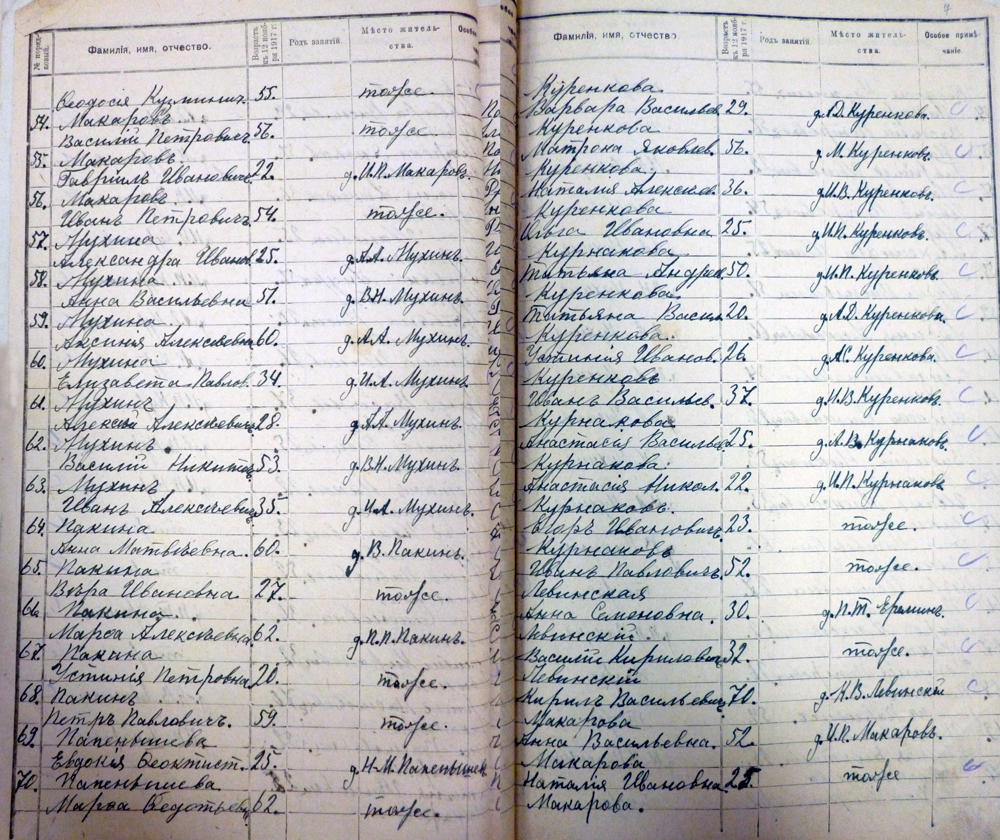 № поряд-
ковый.
Фамилія, имя, отчество.
Возрастъ
къ 12 нояб-
ря 1917 г.
Родъ занятій.
Мѣсто житель-
ства.
Особое
Ѳеодосія Кузминич. 55. тоже.
54. Макаровъ
Василій Петровичъ 56. тоже.
55. Макаровъ.
Гавріилъ Ивановичъ 22. д. И.П. Макаровъ.
56. Макаровъ
Иванъ Петровичъ 54. тоже.
57. Мухина
Александра Иванов 25. д. А.А. Мухинъ.
58. Мухина
Анна Васильевна 51. д. В.Н. Мухинъ.
59. Мухина
Аксинія Алексѣевна 60. д. А.А. Мухинъ.
60. Мухина
Елизавета Павлов. 34. д. И.А. Мухинъ.
61. Мухинъ
Алексѣй Алексѣевичъ 28. д. А.А. Мухинъ.
62. Мухинъ
Василій Никитичъ 53. д. В.Н. Мухинъ.
63. Мухинъ
Иванъ Алексѣевичъ 35. д. И.А. Мухинъ.
64. Пакина
Анна Матвѣевна. 60. д. В. Пакинъ.
65. Пакина
Вѣра Ивановна 27. тоже.
66. Пакина
Марѳа Алексѣевна 62. д. П.П. Пакинъ.
67. Пакина
Устинія Петровна 20. тоже.
68. Пакинъ
Петръ Павловичъ. 59. тоже.
69. Папенышева
Евдокія Ѳеоктист. 25. д. Н-М. Папенышев
70. Папенышева
Марѳа Ѳедотьевн 62. тоже.
7
Фамилія, имя, отчество.
Возрастъ
къ 12 нояб-
ря 1917 г.
Родъ занятій.
Мѣсто житель-
ства.
Особое примѣ-
чаніе.
Куренкова
Варвара Васильев 29. д. А.Д. Куренковъ.
Куренкова
Матрона Яковлев. 56. д. М. Куренковъ.
Куренкова.
Наталія Алексѣев. 36. д. И.В. Куренковъ.
Куренкова
Ольга Ивановна 25. д. И.П. Куренковъ.
Курнакова
Татьяна Андреев 50. д. И.П. Куренковъ.
Куренкова
Татьяна Васил 20. д. А.Д. Куренковъ.
Куренкова.
Устинія Иванов. 26. д. А.С. Куренкова.
Куренковъ
Иванъ Васильев. 37. д. И.В. Куренковъ.
Курнакова
Анастасія Васильев 25. д. А.В. Курнаковъ.
Курнакова.
Анастасія Никол. 22. д. И.П. Курнаковъ
Курнаковъ.
Егоръ Ивановичъ 23. тоже.
Курнаковъ
Иванъ Павловичъ 52. тоже.
Левинская
Анна Семеновна. 30. д. П.Т. Ереминъ.
Левинскій
Василій Кириловичъ 32. тоже.
Левинскій
Кирилъ Васильевичъ 70. д. К.В. Левинскій
Макарова
Анна Васильевна. 52. д. И.П. Макаровъ.
Макарова
Наталія Ивановна 25. тоже
Макарова.